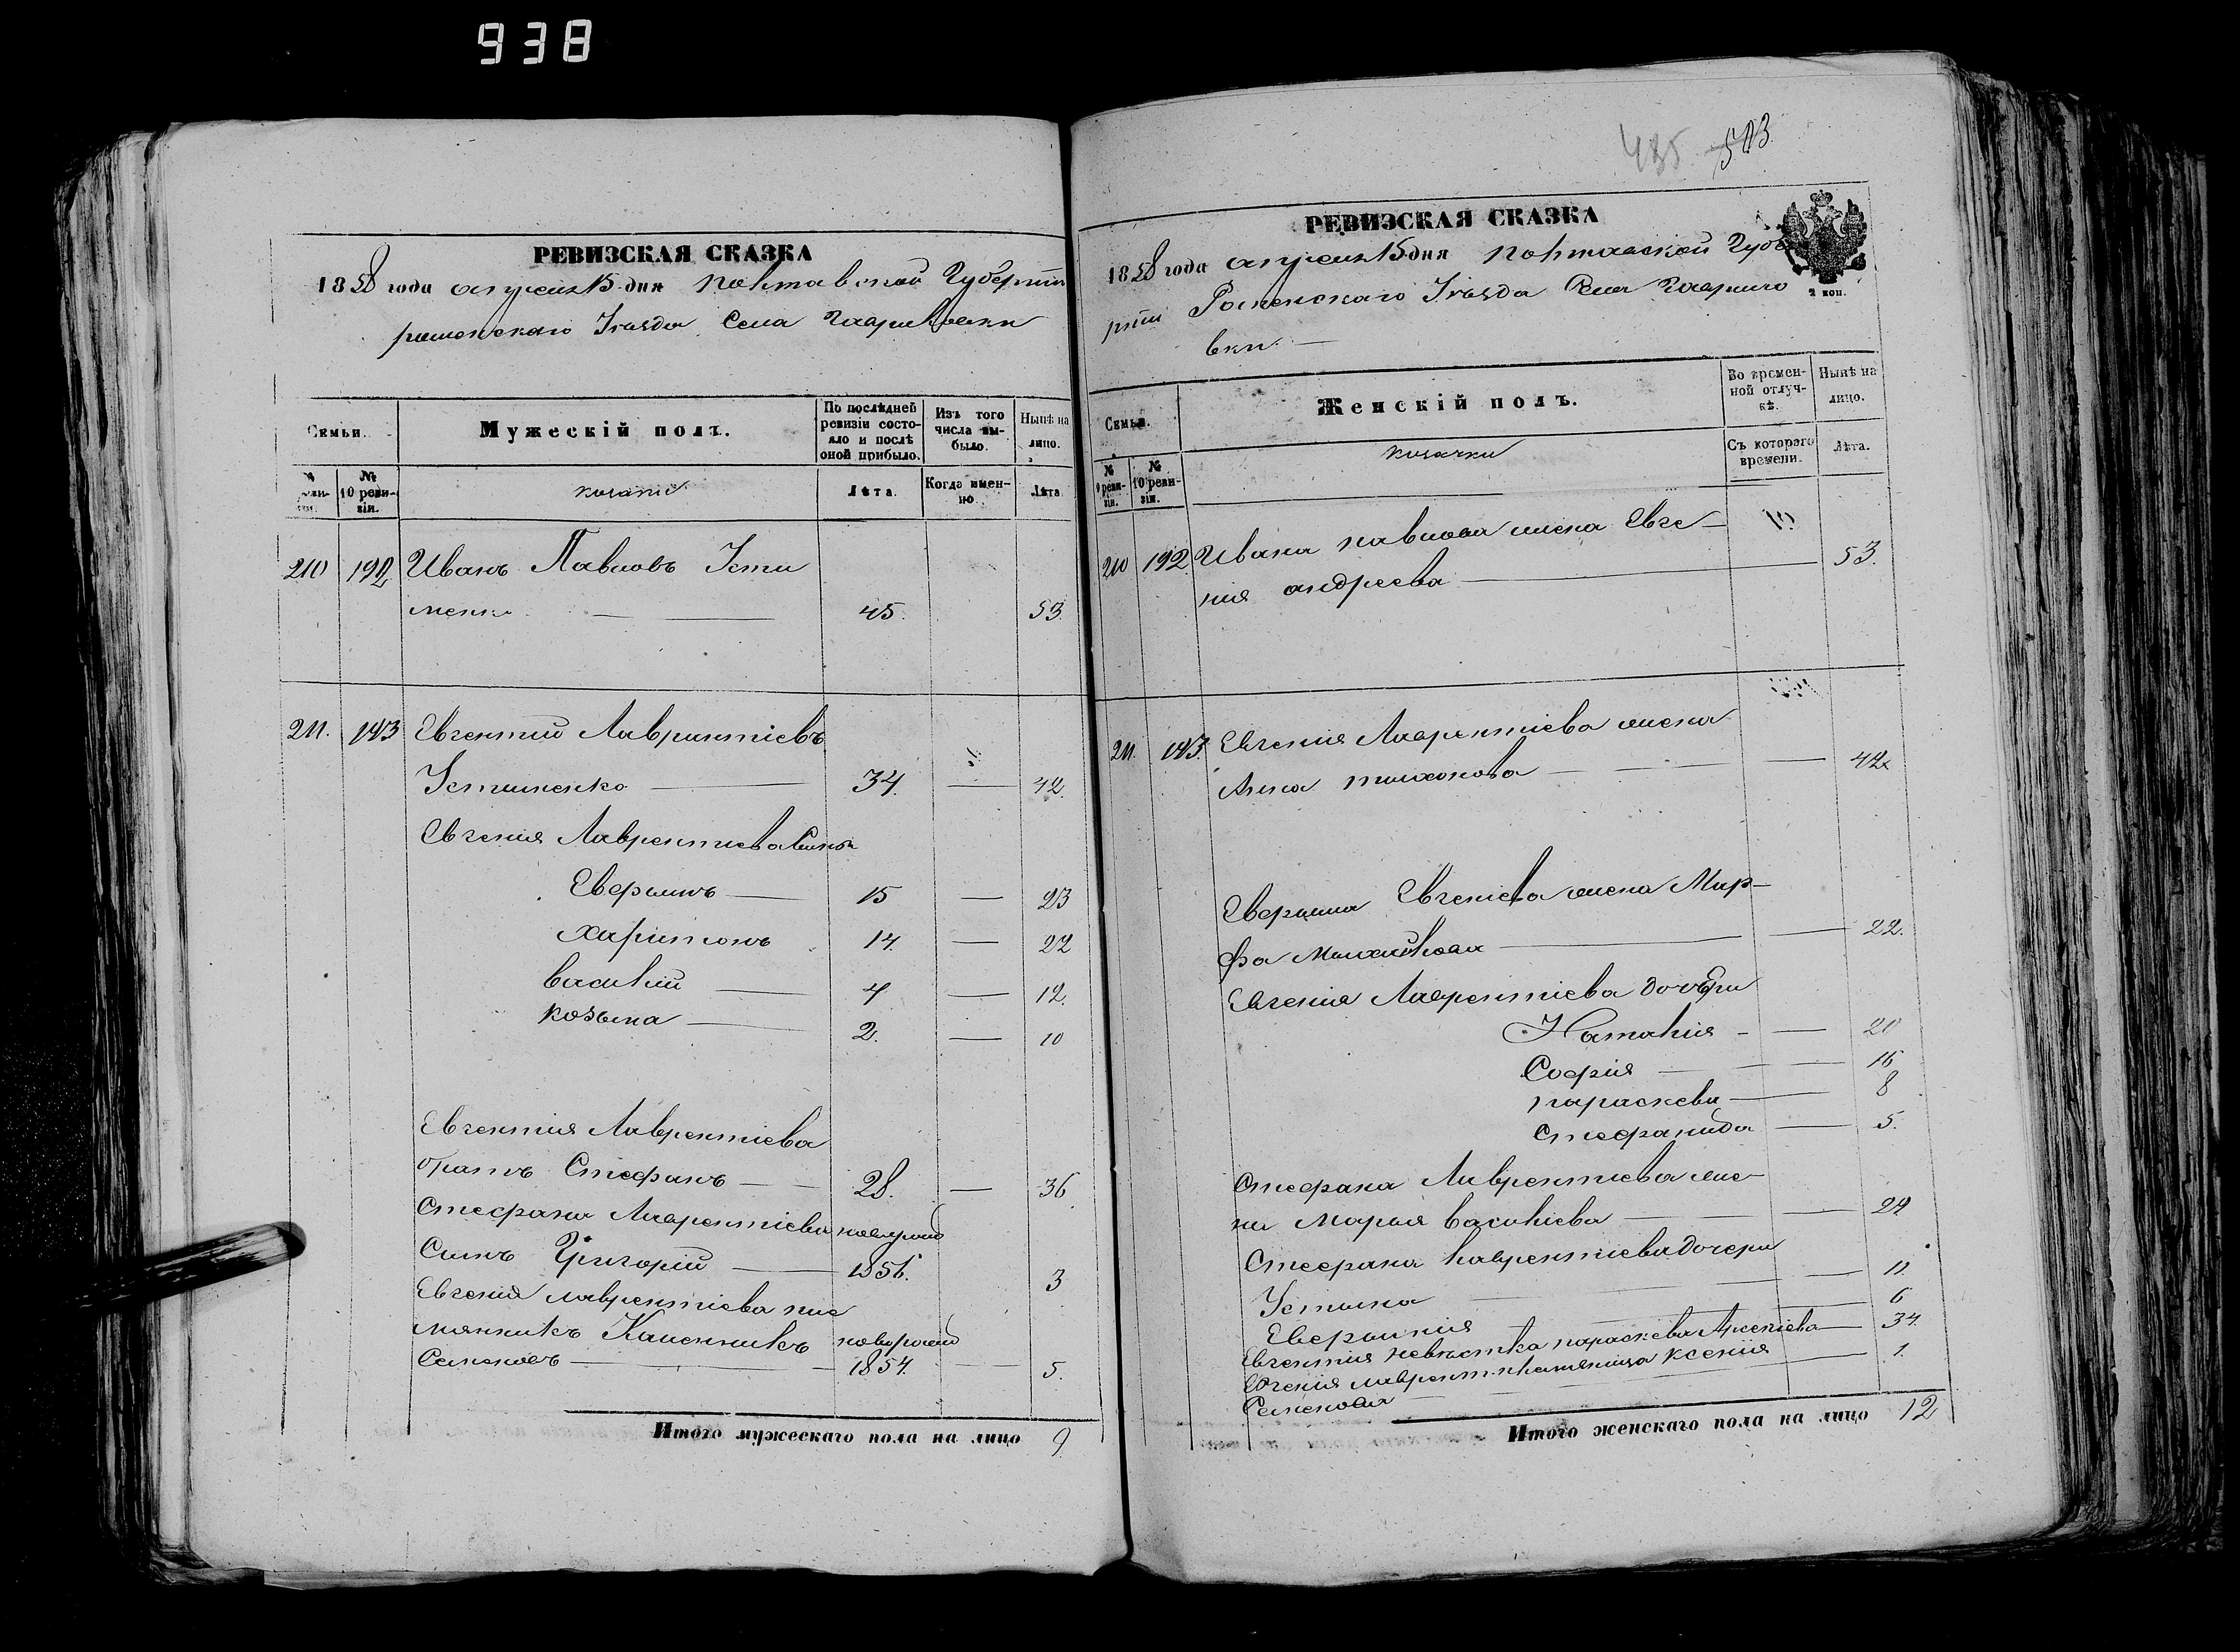 938
РЕВИЗСКАЯ СКАЗКА
1858 года апреля 15 дня Полтавской Губерніи
роменского Уезда Села Гавриловки
Семьи.
Мужескій полъ.
По послѣдней ревизіи состояло и послѣ оной прибыло.
Изъ того числа выбыло.
Нынѣ на лицо.
№
№ 10 ревизіи.
козаки
Лѣта.
Когда именно.
Лѣта
210 192 Иванъ Павловъ Усти
менко 45. 53.
211. 193 Евгентий Лаврентіевъ
Устименко 34. 42.
Евгения Лаврентиева сыны
15 23
Харитонъ 14. 22
василий 4 12.
козьма 2. 10
Евгентия Лаврентіева
братъ Стефанъ 28. 36
Стефана Лаврентіева новорожд
Сынъ Григорій 1856. 3
Евгения лаврентіева пле
мянникъ новорожд
Семеновъ 1854. 5.
Итого мужескаго пола на лицо 9.
435 503.
РЕВИЗСКАЯ СКАЗКА
2 коп.
1858 года апреля 15 дня полтавской Губе
рніи Роменскаго Уезда Села Гаврило
вки.
Семьи.
Женскій полъ.
Во временной отлучкѣ.
Нынѣ на лицо.
№ 9 ревизіи.
№ 10 ревизіи.
козачки
Съ котораго времени.
Лѣта.
210 192. Ивана павлова жена Евге
ния андреева 53.
211. 193. Евгения Лаврентіева жена
Анна тихонова 42
Евгениева жена Мар
фа михайлова 22.
Евгения Лаврентіева дочери
Наталия 20
София 15
параскева 8
стефанида 5.
Стефана Лаврентиева же
на Марья василиева 29
Стефана лаврентиева дочери
Устина 11.
6
Евгентия невестка параскева 34.
Евгения лаврент. племяница ксения 1.
Семенова
Итого женскаго пола на лицо 12